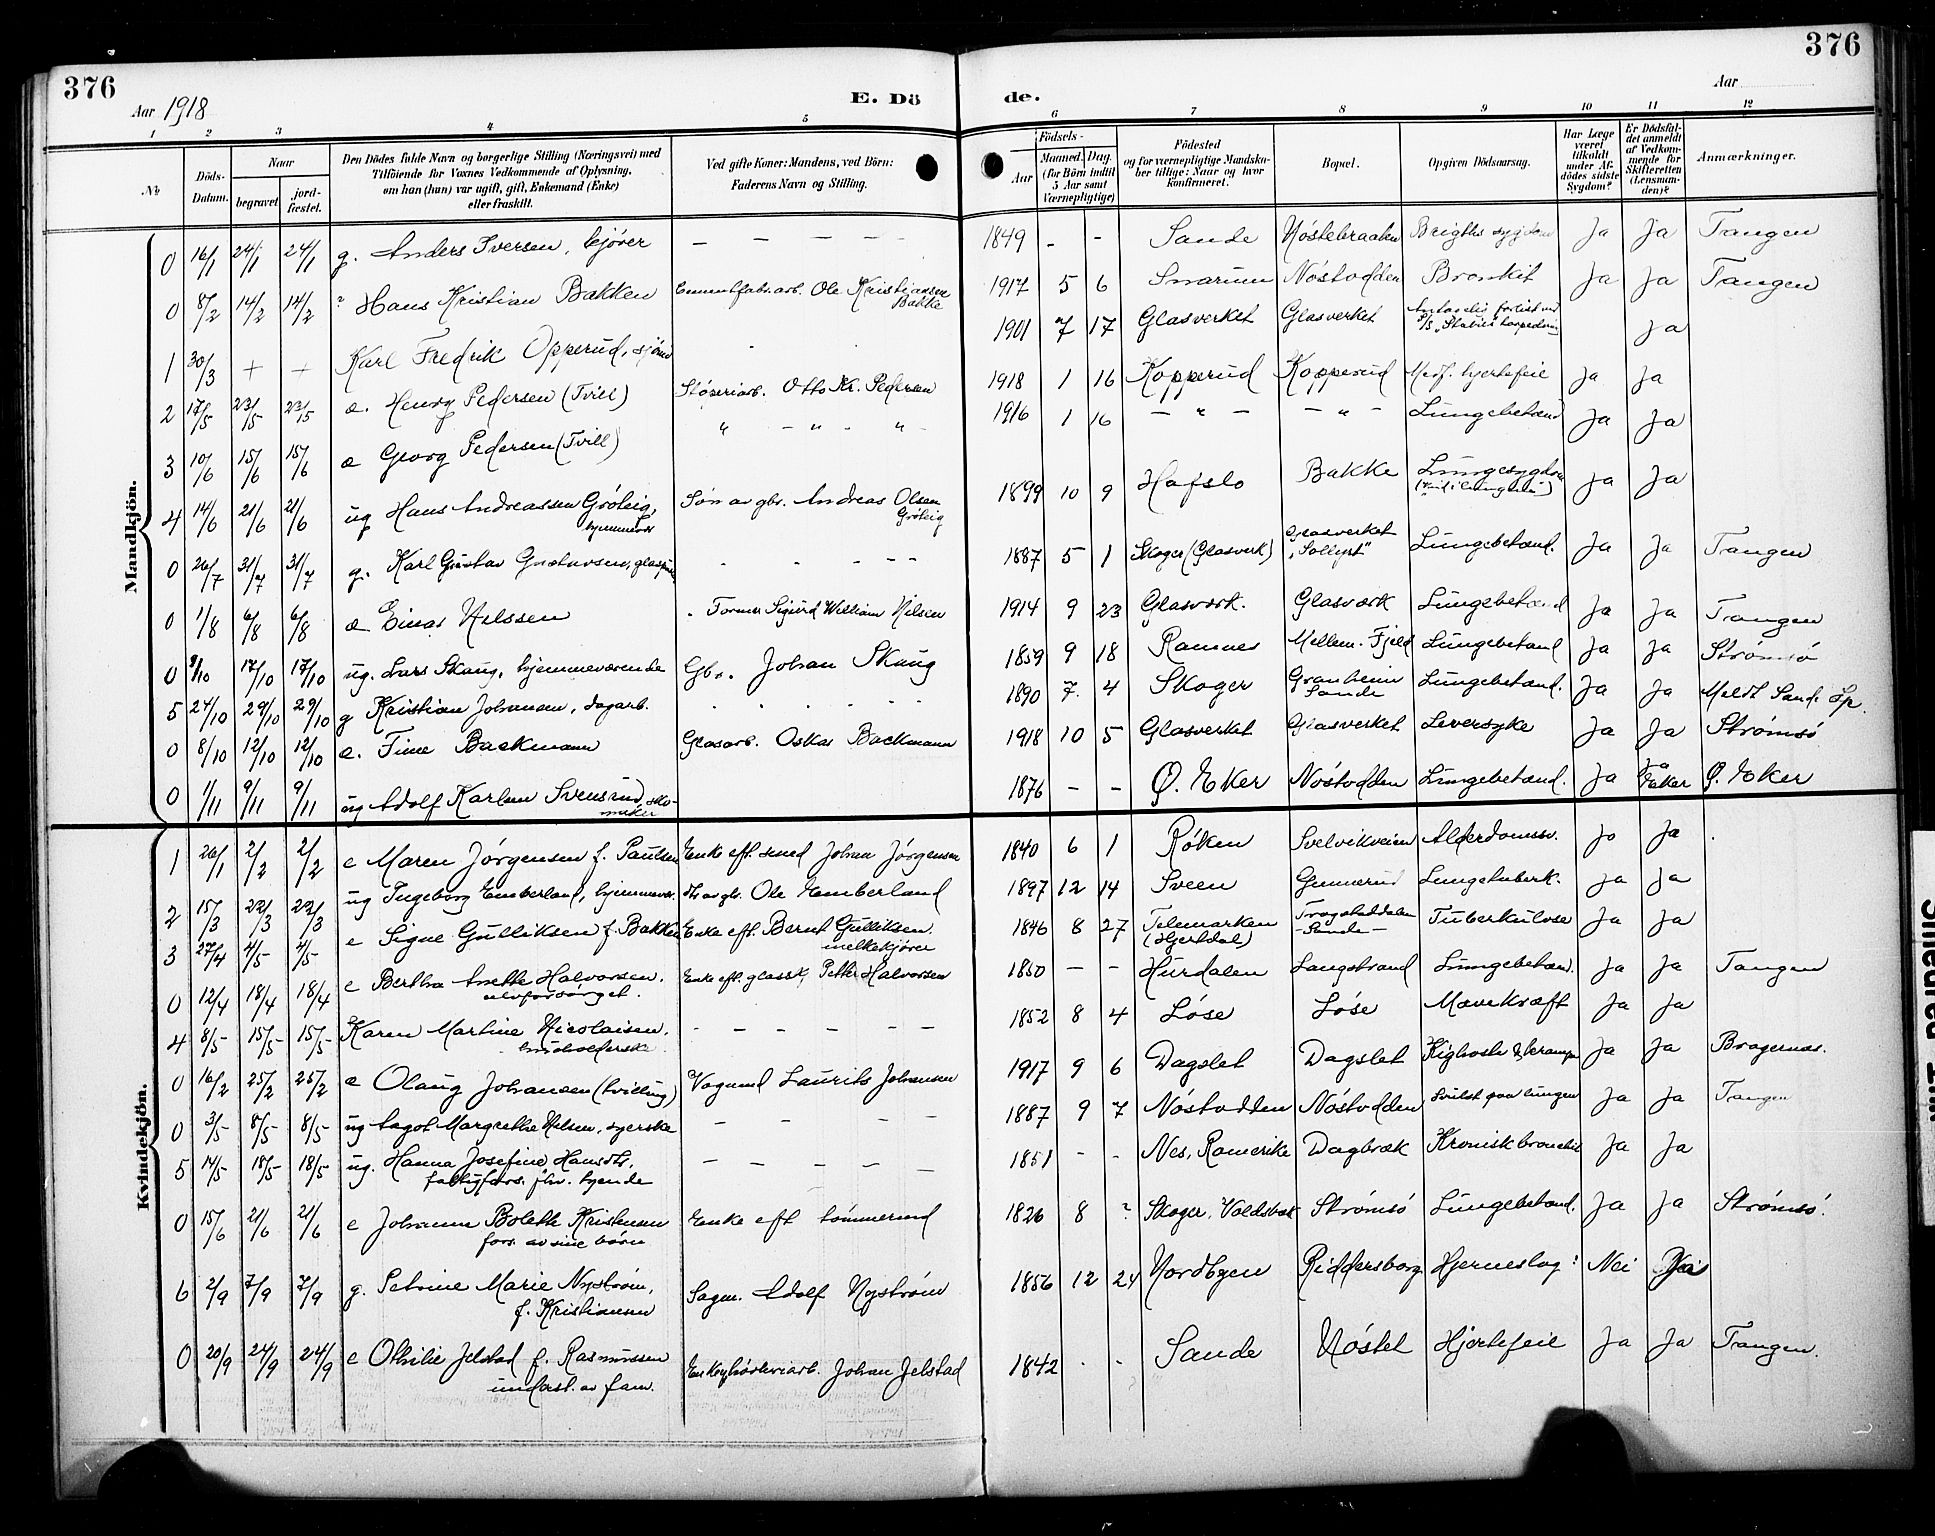 376
376
Aar 1918
E. Dö
de.
Aar
1 2 3 4 5 6 7 8 9 10 11 12
№
Döds-Datum.
Naar
begravet
jord-fæstet.
Den Dödes fulde Navn og borgerlige Stilling (Næringsvei) med
Tilföiende for Voxnes Vedkommende af Oplysning,
om han (hun) var ugift, gift, Enkemand (Enke)
eller fraskilt.
Ved gifte Koner: Mandens, ved Börn:
Faderens Navn og Stilling.
Födsels-
Aar
Maaned. Dag.
(for Börn indtil
5 Aar samt
Værnepligtige)
Födested
og for værnepligtige Mandskaber tillige: Naar og hvor
konfirmeret.
Bopæl.
Opgiven Dödsaarsag.
Har Læge været tilkaldt under Afdödes sidste Sygdom?
Er Dödsfaldet anmeldt af Vedkommende for Skifteretten (Lensmanden)?
Anmærkninger.
Mandkjön.
0 16/1 24/1 24/1 g. Anders Iversen, kjører – – – – – 1849 – – Sande Nøstebraaten Brigths sygdom Ja Ja Tangen
0 8/2 14/2 14/2 Hans Kristian Bakken Cementfabr.arb. Ole Kristiansen Bakke 1917 5 6 Snarum Nøstodden Bronkit Ja Ja Tangen
1 30/3 + + Karl Fredrik Opperud, sjömd 1901 7 17 Glasverket Glasverket Antagelig forlist ved S/S Ja
2 17/5 23/5 23/5 e. Henry Pedersen (Tvill) Støperiarb. Otto Kr. Pedersen 1918 1 16 Kopperud Kopperud Medf. hjertefeil Ja Ja
3 10/6 15/6 15/6 e Georg Pedersen (Tvill) " – " – " – 1916 1 16 – " – – " – Lungebetænd Ja Ja
4 14/6 21/6 21/6 ug Hans Andreassen Grøteig, hjemmevær Søn av gbr. Andreas Olsen Grøteig 1899 10 9 Hafslo Bakke Lungesygdom Ja Ja
0 26/7 31/7 31/7 g. Karl Gustav Gustavsen, 1887 5 1 Skoger (Glasverk) Glasverket "Solløst" Lungebetænd. Ja Ja Tangen
0 1/8 6/8 6/8 e Einar Nilssen Former Sigurd William Nilsen 1914 9 23 Glasværk. Glasværk Lungebetænd Ja Ja Tangen
0 9/10 17/10 17/10 ug. Lars Skaug, hjemmeværende Gbr. Johan Skaug 1859 9 18 Ramnes Mellem-Fjeld Lungebetænd Ja Ja Strømsø
5 24/10 29/10 29/10 g Kristian Johansen, dagarb. 1890 7 4 Skoger Granheim Sande Lungebetænd. Ja Ja Meldt Sande Sp.
0 8/10 12/10 12/10 e. Fine Backmann Glasarb. Oskar Backmann 1918 10 5 Glasverket Glasverket Leversyke Ja Ja Strømsø
0 1/11 9/11 9/11 ug Adolf Karlsen Svensrud, skomaker 1876 – – Ø. Eker Nøstodden Lungebetænd. Ja Ja Eker Ø. Eker
Kvindekjön.
1 26/1 2/2 2/2 e Maren Jørgensen f. Paulsen Enke eft. smed Johan Jørgensen 1840 6 1 Røken Svelvikveien Alderdomssv. Jo Ja
2 15/3 22/3 22/3 ug Ingeborg Emberland, hjemmevær. dtr av gbr. Ole Emberland 1897 12 14 Sveen Gunnerud Lungetuberk. Ja Ja
3 27/4 4/5 4/5 e Signe Gulliksen f. Bakken Enke eft. Bernt Gulliksen. melkekjører 1846 8 27 Telemarken (Hjertdal) Sande – Tuberkulose Ja Ja
0 12/4 18/4 18/4 e Bertha Anette Halvorsen. selvforsørget. Enke eft. glassk. Petter Halvorsen 1850 – – Hurdalen Langstrand Lungebetæn. Ja Ja Tangen
4 8/5 15/5 15/5 Karen Martine Nicolaisen. husholderske – – – – – – 1852 8 4 Løse Løse Mavekræft Ja Ja
0 16/2 25/2 25/2 e Olaug Johansen (tvilling) Vognmd Laurits Johansen 1917 9 6 Dagslet Dagslet Kighoste & krampe Ja Ja Bragernæs.
0 3/5 8/5 8/5 ug Aagot Margrethe Nilsen, syerske – – – – 1887 9 7 Nøstodden Nøstodden Svulst paa lungen Ja Ja Tangen
5 14/5 18/5 18/5 ug. Hanna Josefine Hansdtr, fattigfors. fhv. tjende – – – – – 1851 – – Nes, Romerike Dagbræk Kronisk bronchit Ja Ja
0 15/6 21/6 21/6 e Johanne Bolette Kristensen fors. av sine børn Enke eft tømmermd 1826 8 ? Skoger, Strømsø Lungebetænd. Ja Ja Strømsø.
6 2/9 7/9 7/9 g. Petrine Marie Nystrøm, f. Kristiansen Sagm. Adolf Nystrøm 1856 12 24 Nordbyen Riddersborg Hjerneslag: Nei Nei
0 20/9 24/9 24/9 e Othilie Jelstad f. Rasmussen underst. av fam. Johan Jelstad 1842 – – Sande Nøstet Hjertefeil Ja Ja Tangen.